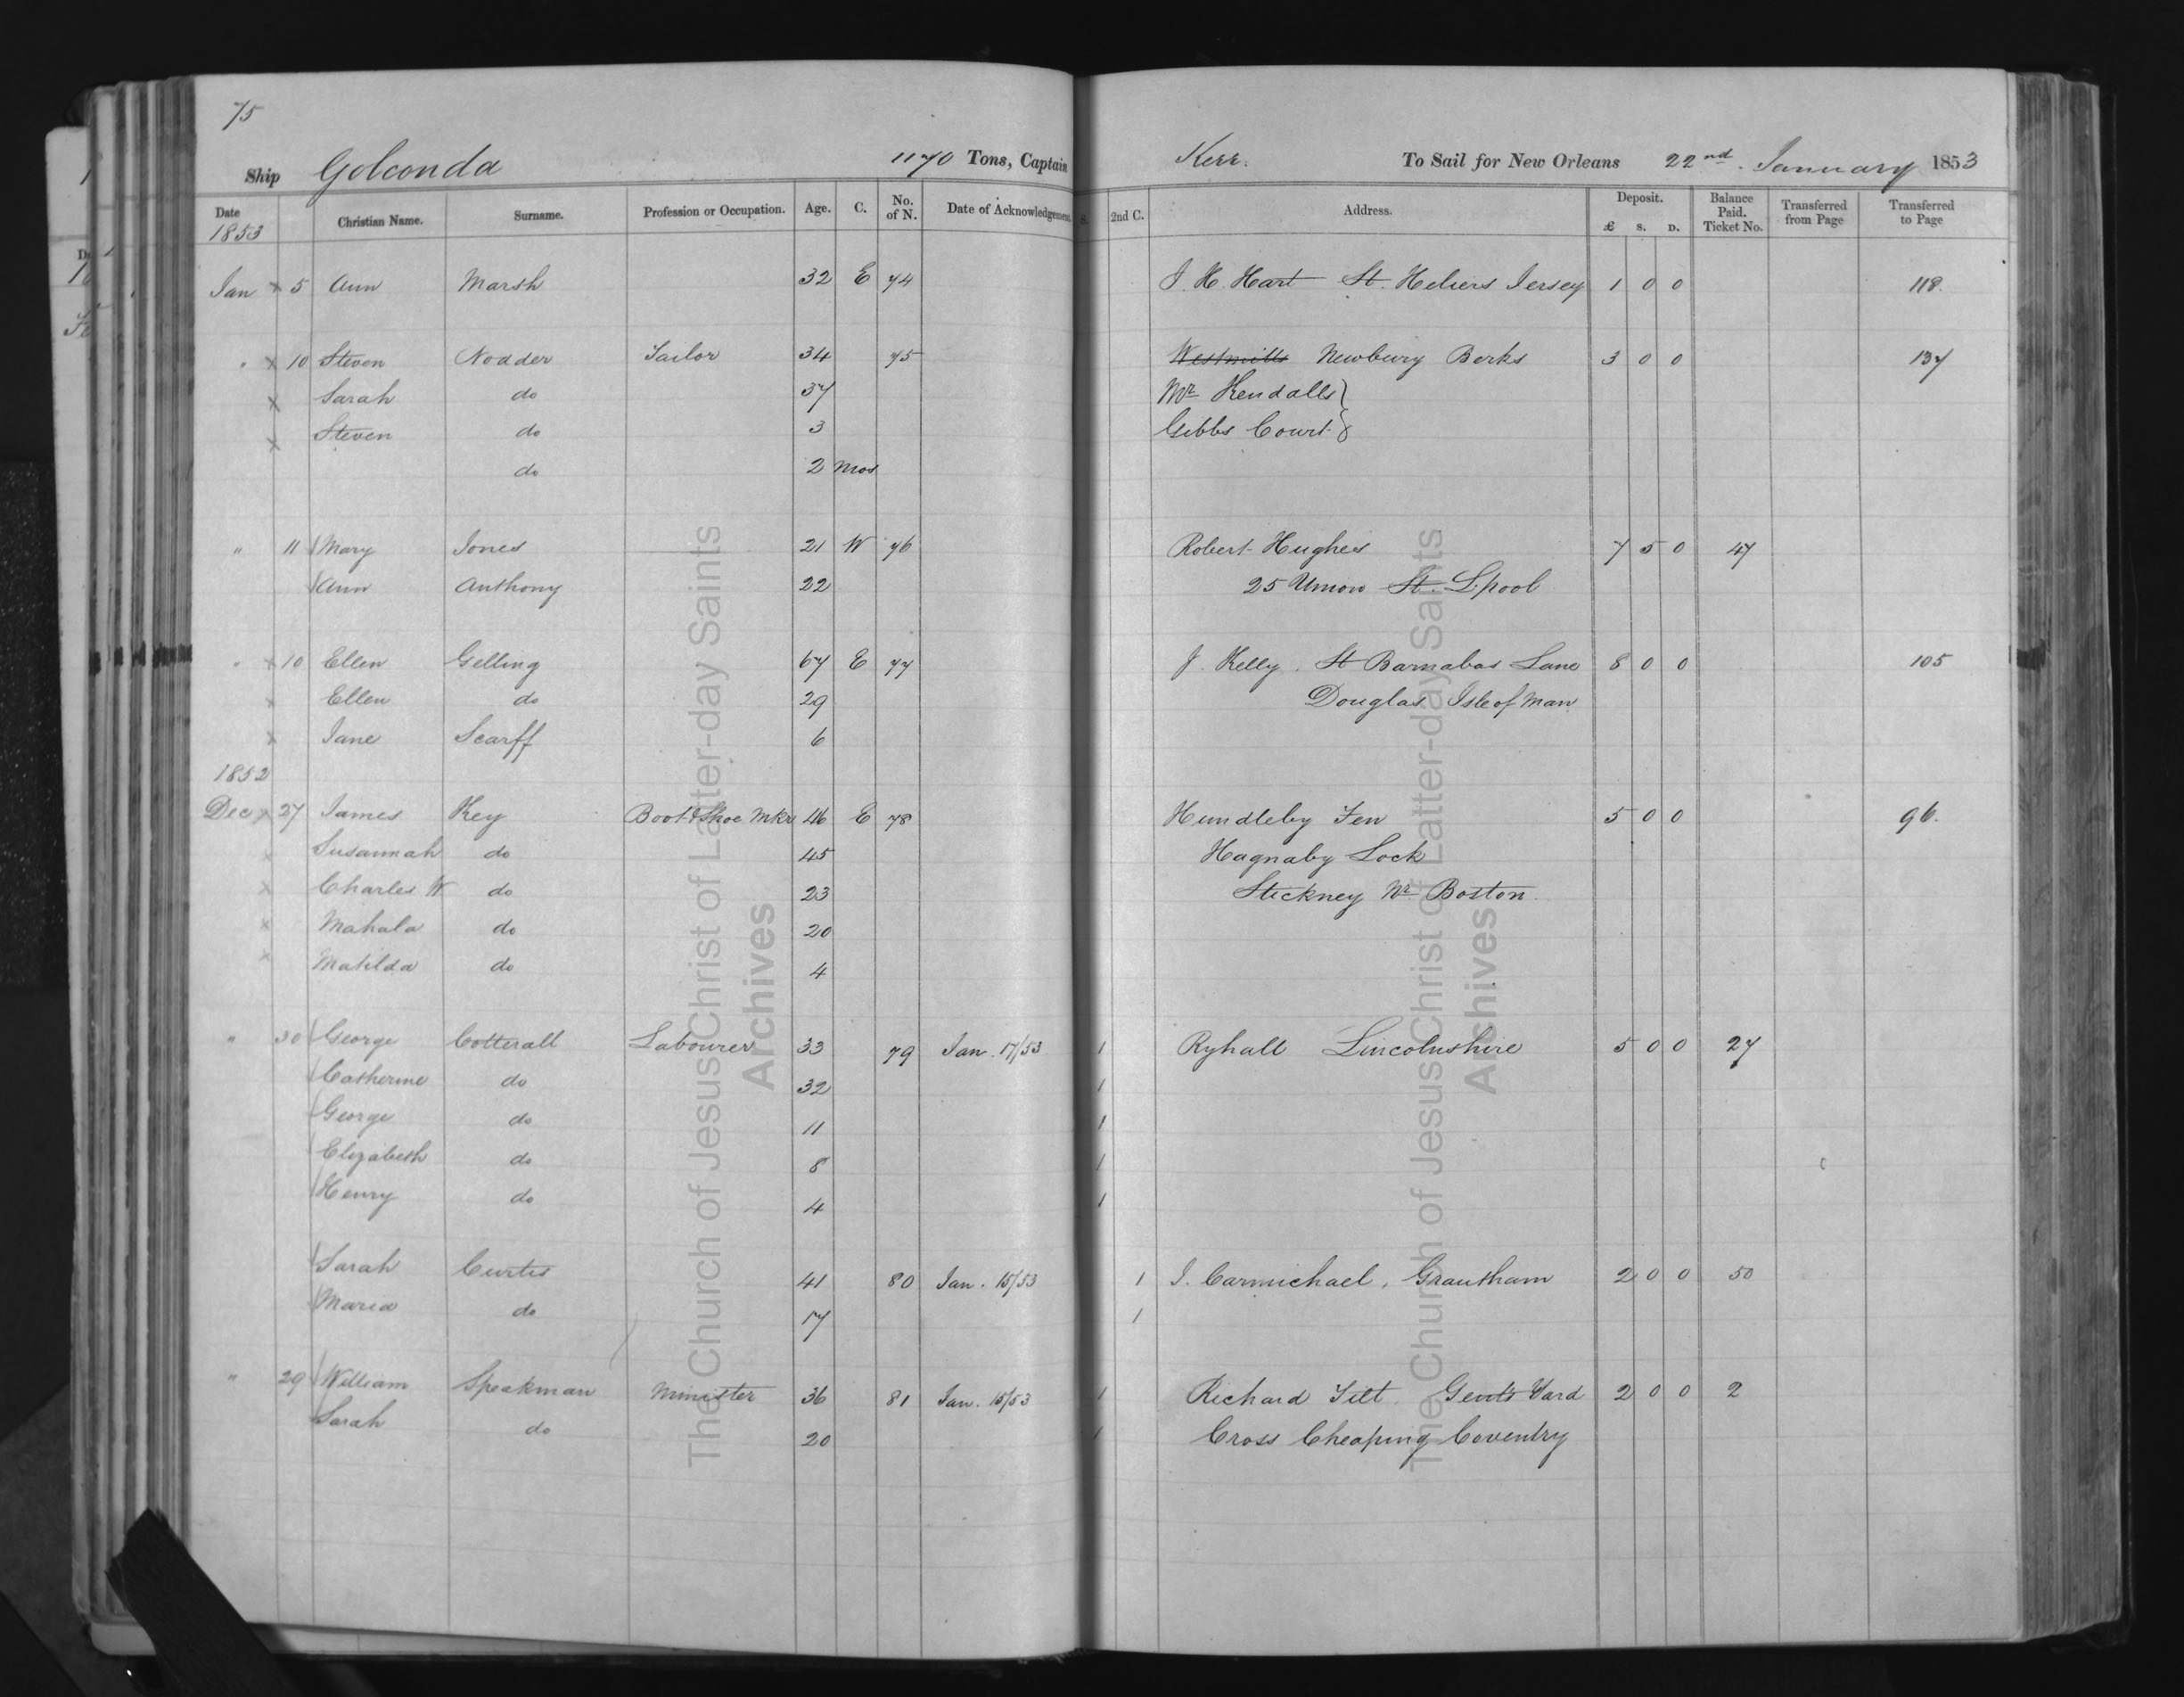 75
Ship Golconda 1170 Tons, Captain Kerr. To Sail for New Orleans 22nd. January 1853
Date 1853 Christian Name. Surname. Profession or Occupation. Age. C. No. of N. Date of Acknowledgement. S. 2nd C. Address. Deposit. £ S. D. Balance Paid. Ticket No. Transferred from Page Transferred to Page
Jan x 5 Ann Marsh 32 E 74 J. H. Hart St. Heliers Jersey 1 0 0 118.
" x 10 Steven Nodder Tailor 34 75 Westmills Newbury Berks 3 0 0 137
x Sarah do 37 Mr Kendalls }
x Steven do 3 Gibbs Court }
do 2 Mos
" 11 Mary Jones 21 W 76 Robert Hughes 7 5 0 47
Ann Anthony 22 25 Union St. Lpool
" x 10 Ellen Gelling 67 E 77 J. Kelly. St Barnabas Lane 8 0 0 105
x Ellen do 29 Douglas Isle of Man
x Jane Scarff 6
1852
Dec x 27 James Key Boot & Shoe Mkr 46 E 78 Hundleby Fen 5 0 0 96.
x Susannah do 45 Hagnaby Lock
x Charles W do 23 Stickney Nr Boston.
x Mahala do 20
x Matilda do 4
" 30 George Cotterall Labourer 33 79 Jan. 17/53 1 Ryhall Lincolnshire 5 0 0 27
Catherine do 32 1
George do 11 1
Elizabeth do 8 1
Henry do 4 1
Sarah Curtis 41 80 Jan. 15/53 1 J. Carmichael, Grantham 2 0 0 50
Maria do 17 1
" 29 William Speakman Minister 36 81 Jan. 15/53 1 Richard Tilt. Gents Yard 2 0 0 2
Sarah do 20 1 Cross Cheaping Coventry
The Church of Jesus Christ of Latter-day Saints
Archives
The Church of Jesus Christ of Latter-day Saints
Archives